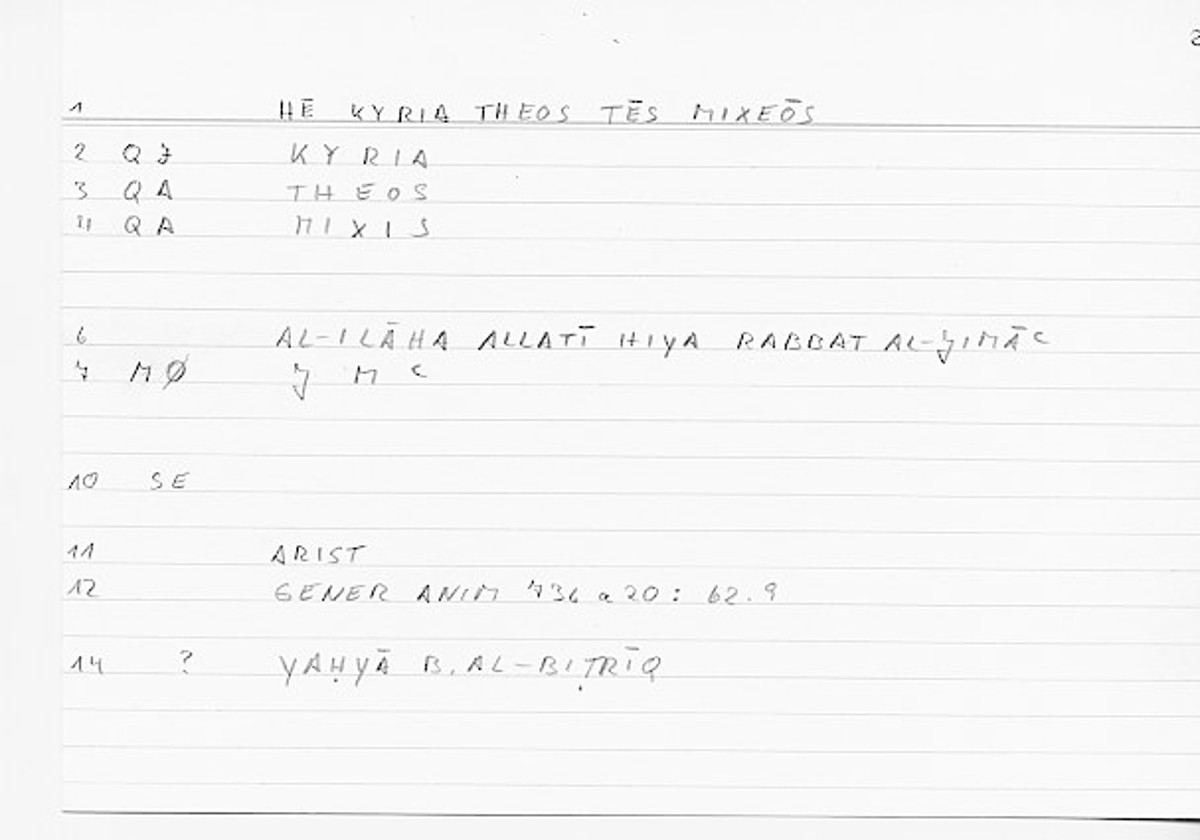 1 HĒ KYRIA THEOS TĒS MIXEŌS
2 QJ KYRIA
3 QA THEOS
4 QA MIXIS
6 AL-ILĀHA ALLATĪ HIYA RABBAT AL-ǦIMĀʿ
7 MØ Ǧ M ʿ
10 SE
11 ARIST
12 GENER ANIM 736 a 20 : 62.9
14 ? YAḤYĀ B. AL-BIṬRĪQ